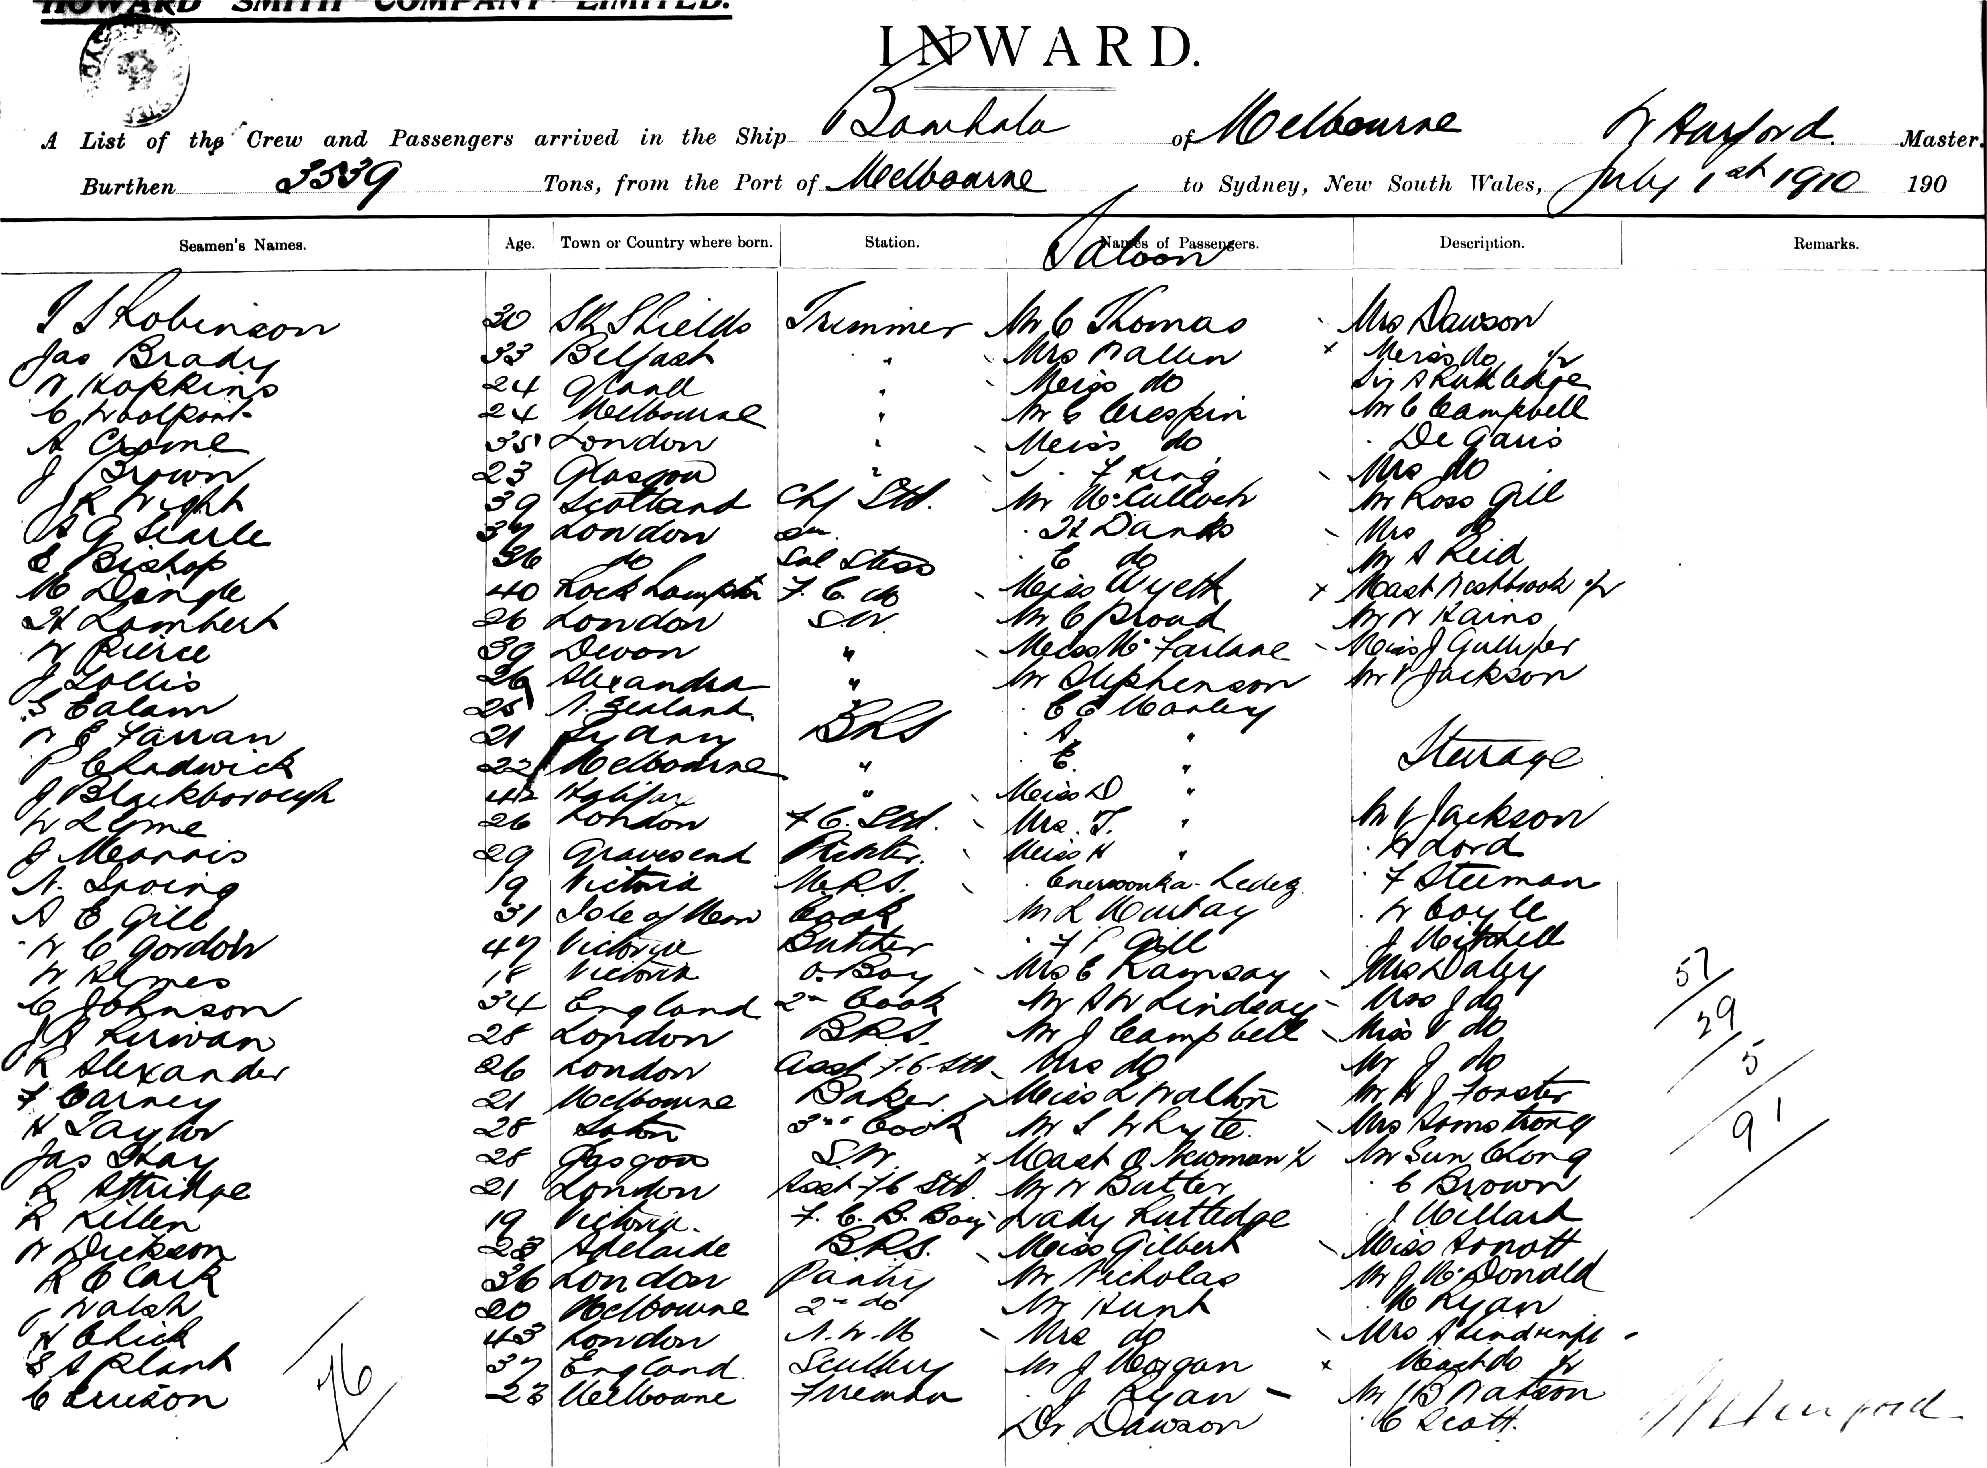 HOWARD SMITH COMPANY LIMITED.
INWARD.
A List of the Crew and Passengers arrived in the Ship Bombala of Melbourne W Harford. Master.
Burthen 3539 Tons, from the Port of Melbourne to Sydney, New South Wales, July 1st 1910 190
Seamen's Names. Age. Town or Country where born. Station. Names of Passengers. Description. Remarks.
Saloon
Robinson 30 Sth Shields Trimmer Mr C Thomas Mrs Dawson
Jas Brady 33 Belfast " Mrs Wallen Miss do
W Hopkins 24 " Miss do Sir A Rutledge
C Woolport 24 Melbourne " Mr C Crespin Mr C Campbell
A Crome 35 London " Miss do De Garis
J Brown 23 Glasgow " F King Mrs do
J R Wight 39 Scotland Chf Std. Mr McCulloch Mr Ross Gill
A G Searle 37 London H Danks Mrs
E Bishop 36 do Sal Stess E do Mr A Reid
M Dingle 40 Rockhampton F. C. do Miss Wyeth Mast Westbrook
H Lambert 26 London SW Mr C Proud Mr W Kains
W Pierce 39 Devon " Miss McFarlane Miss J Gulliver
J Lollis 26 Alexandra " Mr Stephenson Mr V Jackson
S Calam 25 N. Zealand " C E Manley
W E Farran 21 Sydney BRS A "
P Chadwick 22 Melbourne " E. " Steerage
J Blackborough 42 Halifax " Miss D "
W Lyme 26 London F C. Std. Mrs. T. " Mr V Jackson
J Morris 29 Gravesend Miss H " H Lord
N. Irving 19 Victoria M.R.S. F Steeman
A E Gill 31 Isle of Man Cook Mr L Murray W Coyle
W C Gordon 47 Victoria Butcher F P Gill J Mitchell
W Hymes 18 Victoria O. Boy Mrs E Ramsay Mrs Daley 57
C Johnson 34 England 2nd Cook Mr A W Lindsay Miss J do 29
J A Kirwan 28 London BRS. Mr J Campbell Miss V do
R Alexander 26 London Asst F.C. Std Mrs do Mr J do 5
F Carney 21 Melbourne Baker Miss L Walton Mr H J Forster
H Taylor 28 3rd Cook Mr S Whyte. Mrs Armstrong 91
Jas Shay 28 Glasgow S.W. Mast O Newman Mr Sun Chong
R Attridge 21 London Asst F C Std. Mr W Butter C Brown
R Killen 19 Victoria. F. C. B. Boy Lady Rutledge J Millard
W Dickson 23 Adelaide BRS. Miss Gilbert Miss Arnott
R C Cark 36 London Pantry Mr Nicholas Mr J McDonald
Walsh 20 Melbourne 2nd do Mr Hunt M Ryan
H Chick 43 London N. W. M Mrs do Mrs A
S A Plant 37 England. Scullery Mr J Morgan Mast do 76
C Ericson 23 Melboune Fireman J Ryan Mr B Watson
Dr. Dawson C Scott.
W Harford